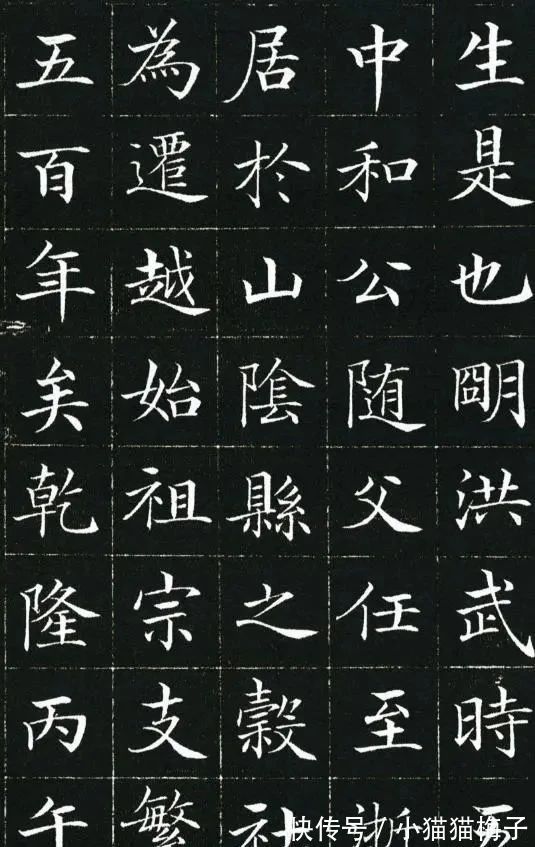 生是也朙洪武時
中和公随父任至浙
居於山陰縣之穀社
為遷越始祖宗支繁
五百年矣乾隆丙午
快传号/小猫猫梅子